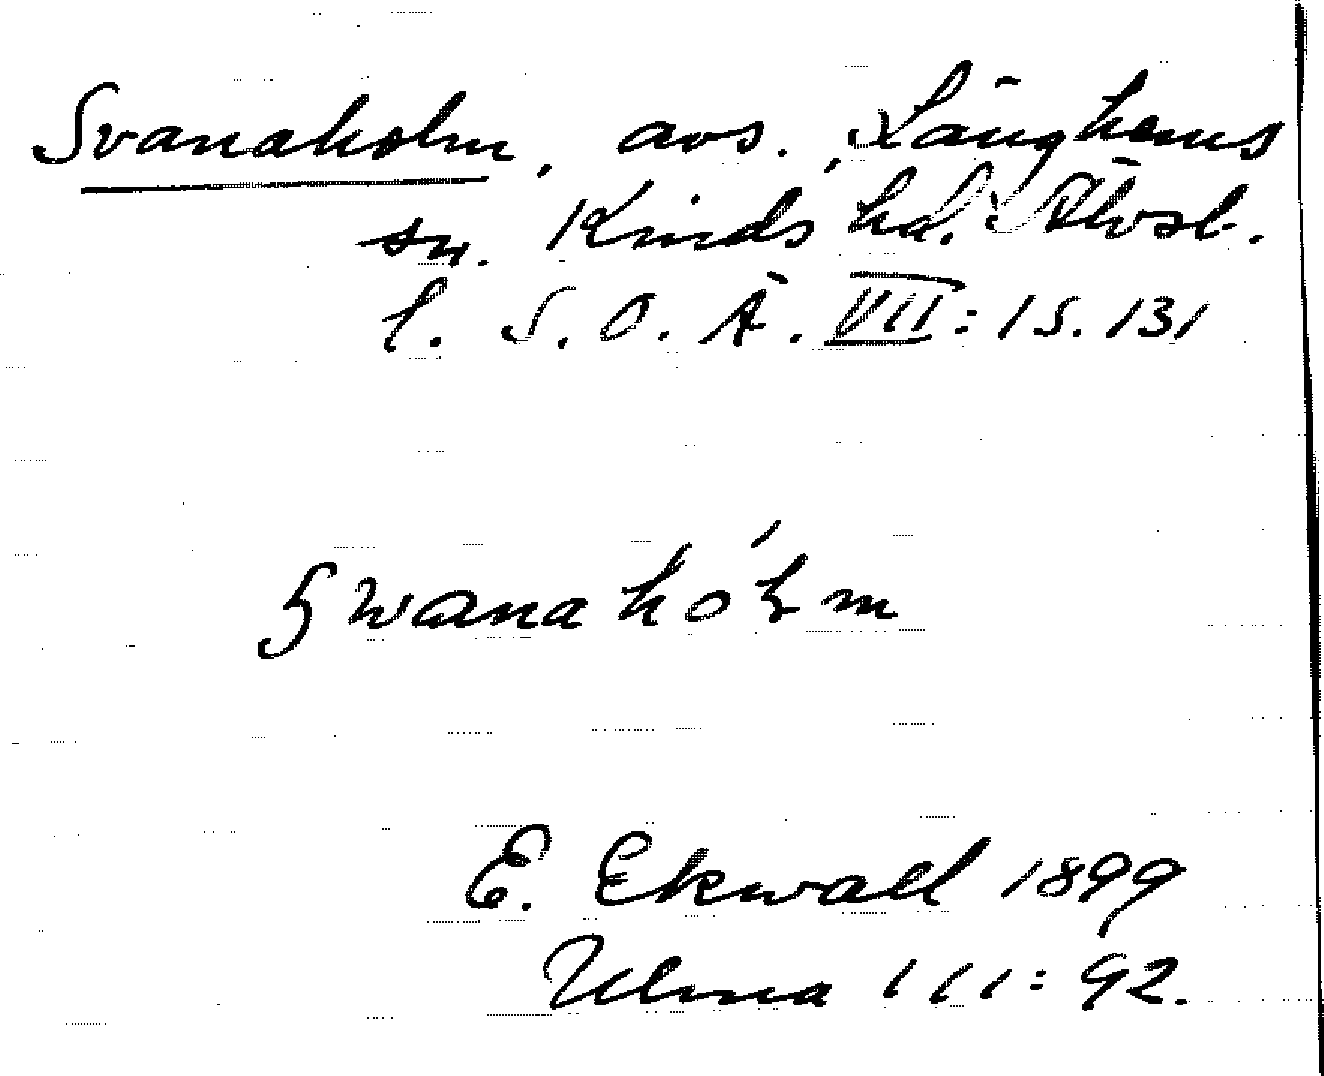 Svanaholm, avs., Länghems
sn. Kinds hd. Älvsb.
l. S. O. Ä. VII: 1 S. 131
Swanahólm
E. Ekwall 1899
Ulma 111: 92.